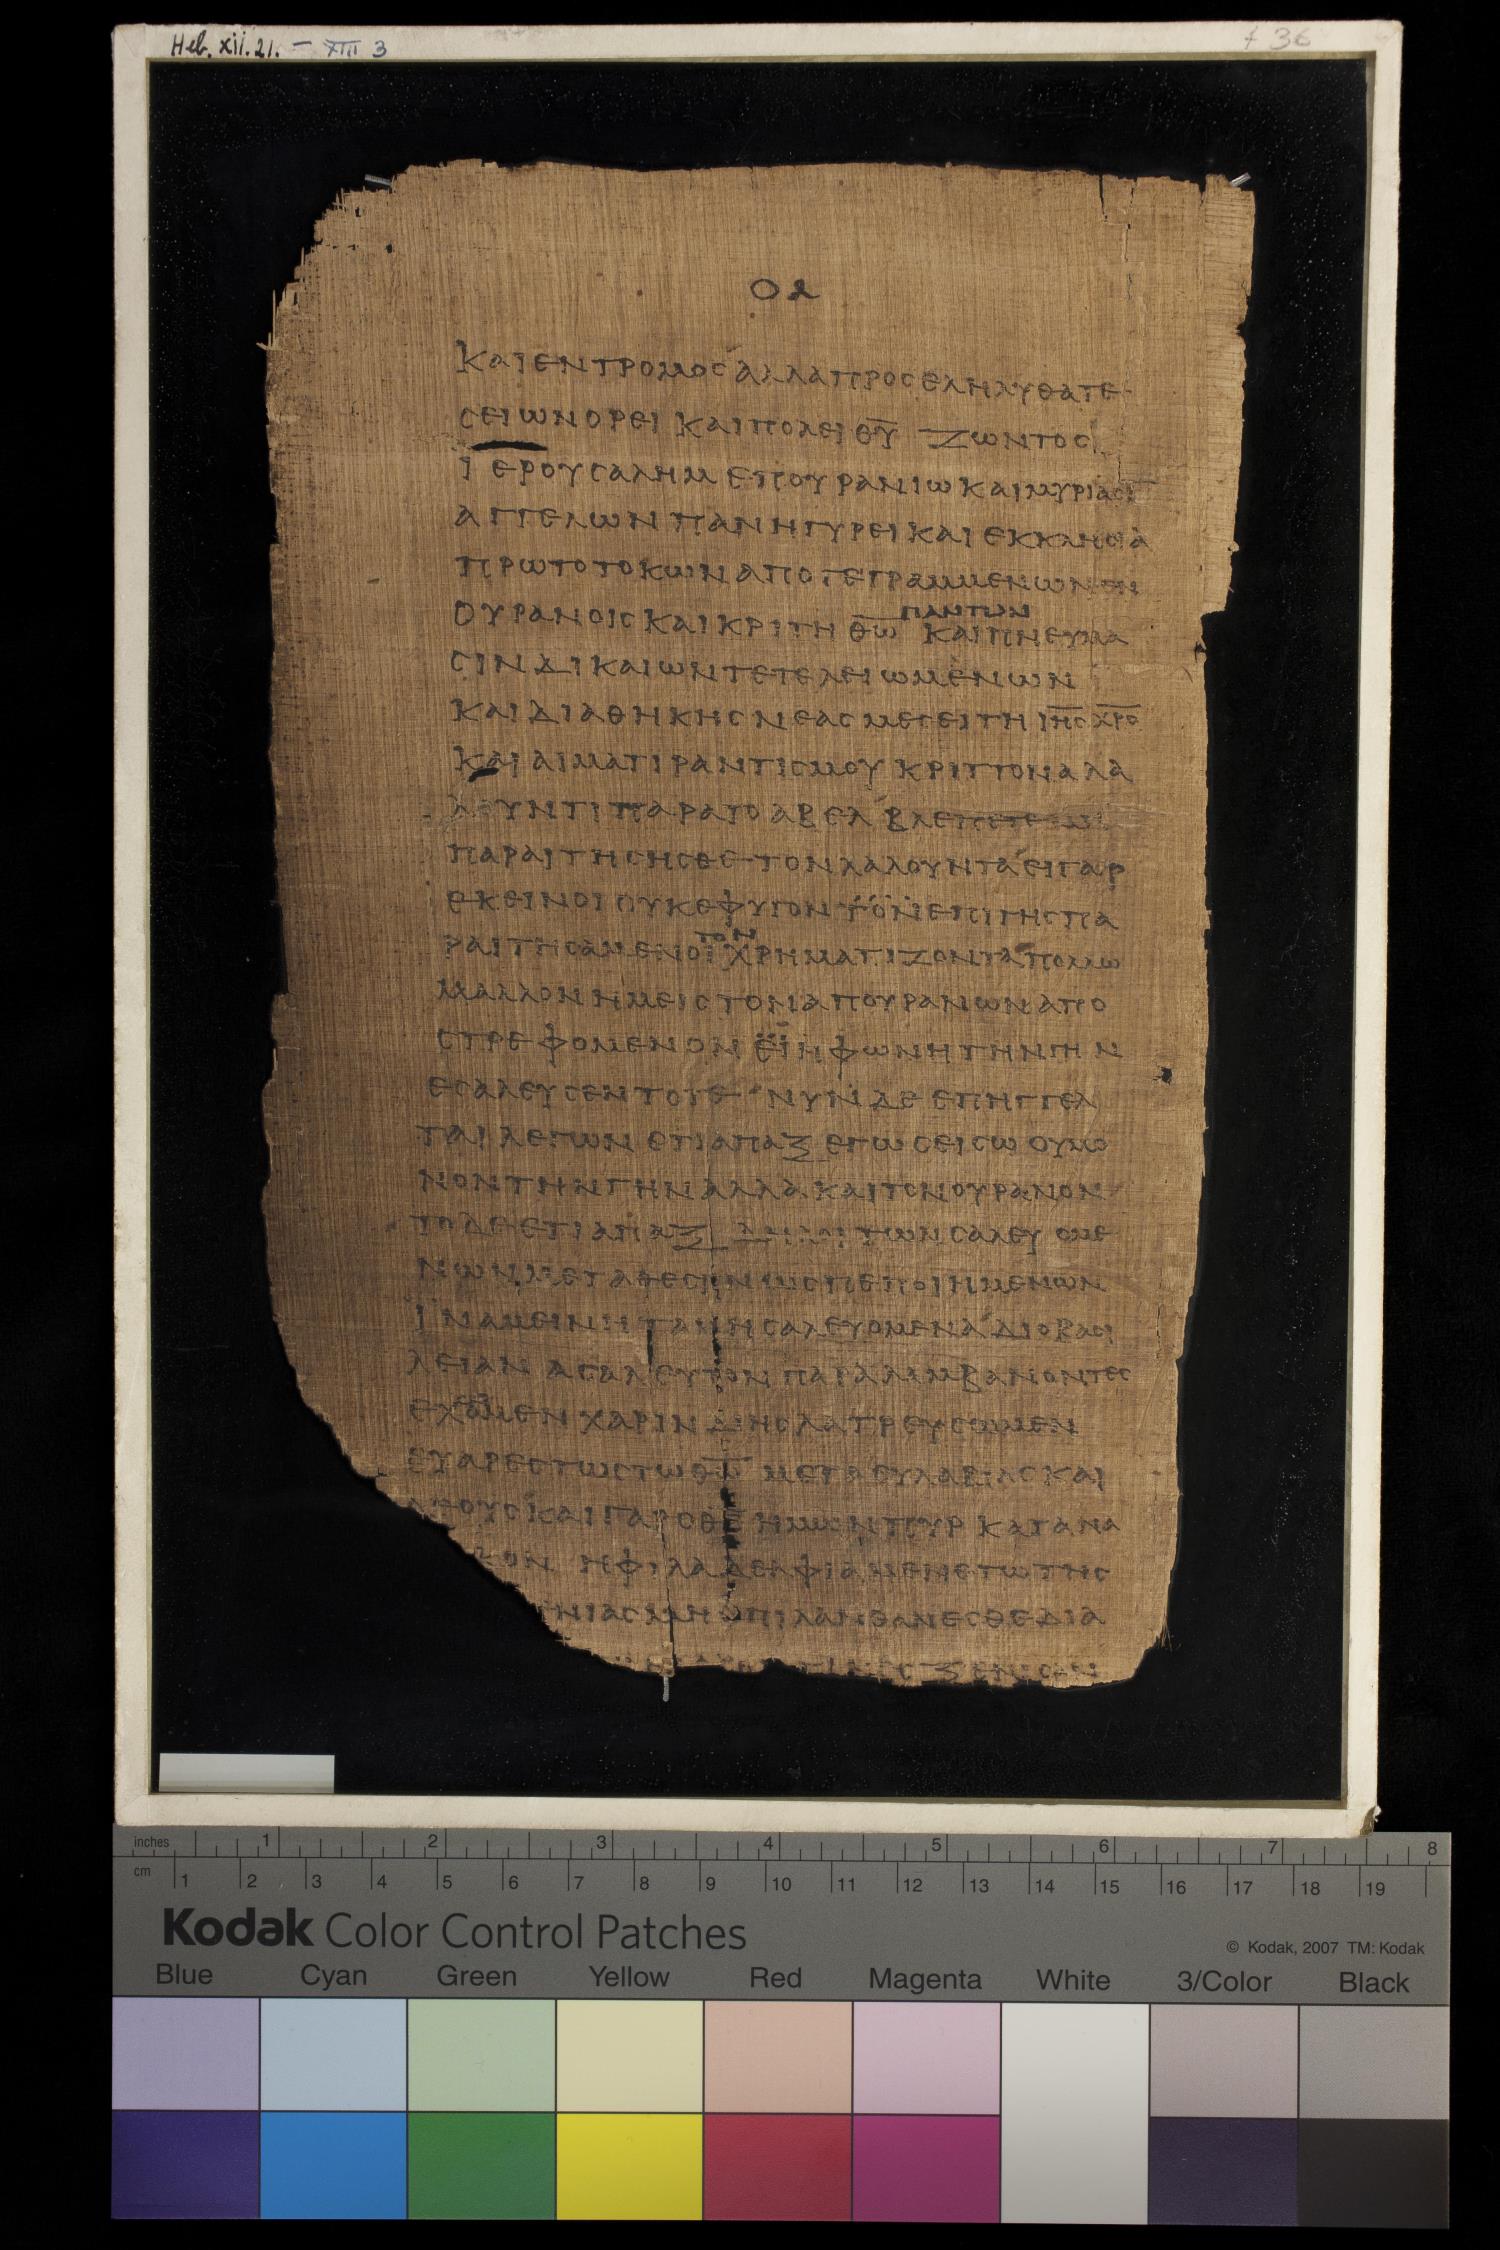 Heb. xii. 21. — XIII 3
f 36
ΟΑ
ΚΑΙ ΕΝΤΡΟΜΟΣ ΑΛΛΑ ΠΡΟΣΕΛΗΛΥΘΑΤΕ
ΣΕΙΩΝ ΟΡΕΙ ΚΑΙ ΠΟΛΕΙ Θ̅Υ̅ ΖΩΝΤΟΣ
ΪΕΡΟΥΣΑΛΗΜ ΕΠΟΥΡΑΝΙΩ ΚΑΙ ΜΥΡΙΑΣΙ
ΑΓΓΕΛΩΝ ΠΑΝΗΓΥΡΕΙ ΚΑΙ ΕΚΚΛΗΣΙΑ
ΠΡΩΤΟΤΟΚΩΝ ΑΠΟΓΕΓΡΑΜΜΕΝΩΝ ΕΝ
ΠΑΝΤΩΝ
ΟΥΡΑΝΟΙΣ ΚΑΙ ΚΡΙΤΗ Θ̅Ω̅ ΚΑΙ ΠΝΕΥΜΑ
ΣΙΝ ΔΙΚΑΙΩΝ ΤΕΤΕΛΕΙΩΜΕΝΩΝ
ΚΑΙ ΔΙΑΘΗΚΗΣ ΝΕΑΣ ΜΕΣΕΙΤΗ Ι̅Η̅Σ̅ ΧΡΟ
ΚΑΙ ΑΙΜΑΤΙ ΡΑΝΤΙΣΜΟΥ ΚΡΙΤΤΟΝΑ ΛΑ
ΛΟΥΝΤΙ ΠΑΡΑ ΤΟ ΑΒΕΛ ΒΛΕΠΕΤΕ
ΠΑΡΑΙΤΗΣΗΣΘΕ ΤΟΝ ΛΑΛΟΥΝΤΑ ΕΙ ΓΑΡ
ΕΚΕΙΝΟΙ ΟΥΚ ΕΦΥΓΟΝ ΤΟΝ ΕΠΙ ΓΗΣ ΠΑ
ΤΟΝ
ΡΑΙΤΗΣΑΜΕΝΟΙ ΧΡΗΜΑΤΙΖΟΝΤΑ ΠΟΛΛΩ
ΜΑΛΛΟΝ ΗΜΕΙΣ ΤΟΝ ΑΠ ΟΥΡΑΝΩΝ ΑΠΟ
ΣΤΡΕΦΟΜΕΝΟΝ ΕΙ Η ΦΩΝΗ ΤΗΝ ΓΗΝ
ΕΣΑΛΕΥΣΕΝ ΤΟΤΕ ΝΥΝ ΔΕ ΕΠΗΓΓΕΛ
ΤΑΙ ΛΕΓΩΝ ΕΤΙ ΑΠΑΞ ΕΓΩ ΣΕΙΣΩ ΟΥ ΜΟ
ΝΟΝ ΤΗΝ ΓΗΝ ΑΛΛΑ ΚΑΙ ΤΟΝ ΟΥΡΑΝΟΝ
ΤΟ ΔΕ ΕΤΙ ΑΠΑΞ ΤΩΝ ΣΑΛΕΥΟΜΕ
ΝΩΝ ΜΕΤΑΘΕΣΙΝ ΩΣ ΠΕΠΟΙΗΜΕΝΩΝ
ΪΝΑ ΜΕΙΝΗ ΤΑ ΜΗ ΣΑΛΕΥΟΜΕΝΑ ΔΙΟ ΒΑΣΙ
ΛΕΙΑΝ ΑΣΑΛΕΥΤΟΝ ΠΑΡΑΛΑΜΒΑΝΟΝΤΕΣ
ΕΧΟΜΕΝ ΧΑΡΙΝ ΔΙ ΗΣ ΛΑΤΡΕΥΣΩΜΕΝ
ΕΥΑΡΕΣΤΩΣ ΤΩ Θ̅Ω̅ ΜΕΤΑ ΕΥΛΑΒΙΑΣ ΚΑΙ
ΔΕΟΥΣ ΚΑΙ ΓΑΡ Ο Θ̅Σ̅ ΗΜΩΝ ΠΥΡ ΚΑΤΑΝΑ
ΟΝ Η ΦΙΛΑΔΕΛΦΙΑ ΜΕΝΕΤΩ ΤΗΣ
ΝΙΑΣ ΜΗ ΕΠΙΛΑΝΘΑΝΕΣΘΕ ΔΙΑ
ΞΕΝΙΣΑΝ
inches 1 2 3 4 5 6 7 8
cm 1 2 3 4 5 6 7 8 9 10 11 12 13 14 15 16 17 18 19
Kodak Color Control Patches
© Kodak, 2007 TM: Kodak
Blue Cyan Green Yellow Red Magenta White 3/Color Black